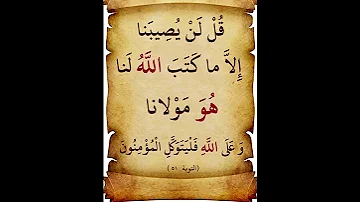 قُلْ لَنْ يُصِيبَنا
إِلاَّ ما كَتَبَ اللَّهُ لَنا
هُوَ مَوْلانا
وَ عَلَى اللَّهِ فَلْيَتَوَكَّلِ الْمُؤْمِنُونَ
(التوبة ٥١)